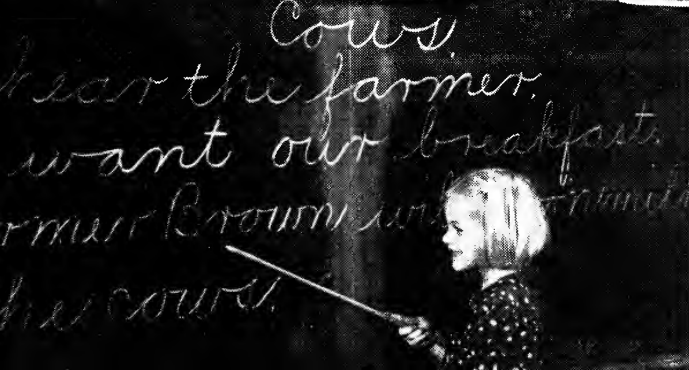 Cows.
hear the farmer.
want our breakfast.
Brown
the cows.